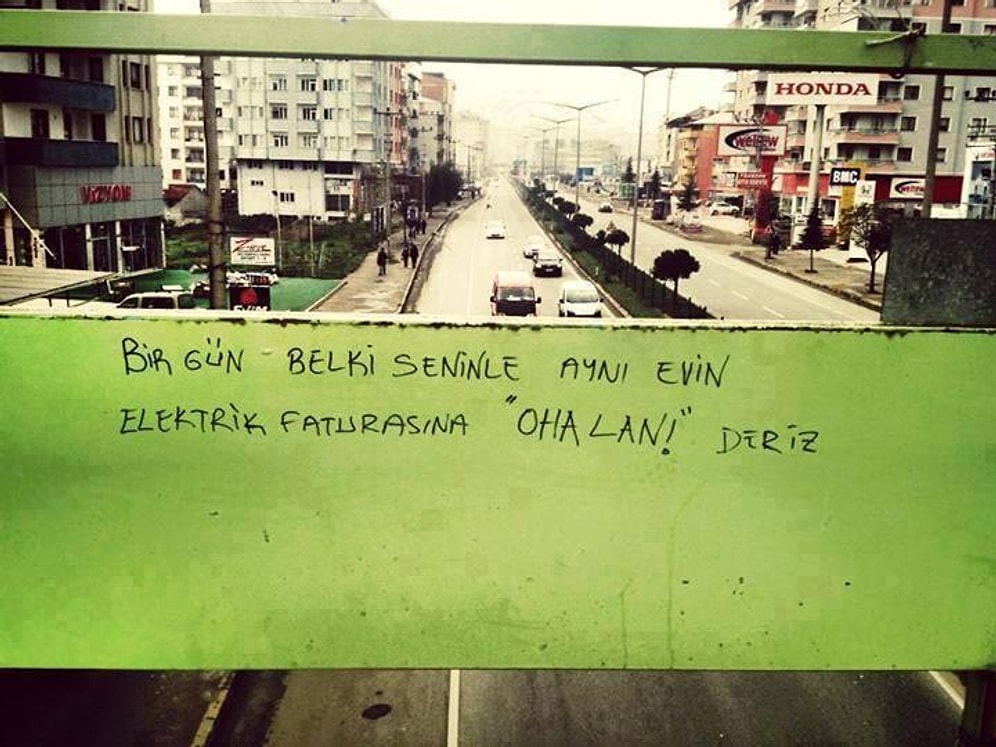 HONDA
BMC
VİZYON
BİR GÜN BELKİ SENİNLE AYNI EVİN
ELEKTRİK FATURASINA "OHA LAN!" DERİZ